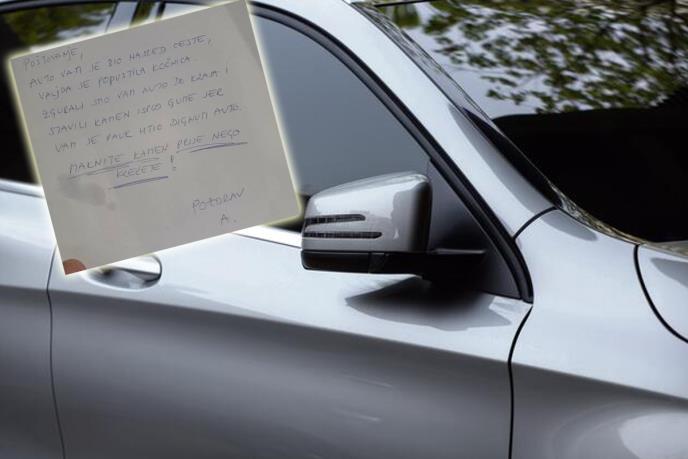 POŠTOVANJE,
AUTO VAM JE BIO NASRED CESTE,
VALJDA JE POPUSTILA KOČNICA.
ZGURALI SMO VAM AUTO DO KRAJA I
STAVILI KAMEN ISPOD GUME JER
VAM JE PAUK HTIO DIGNUTI AUTO.
MAKNITE KAMEN PRIJE NEGO
KRENETE!
POZDRAV
A.